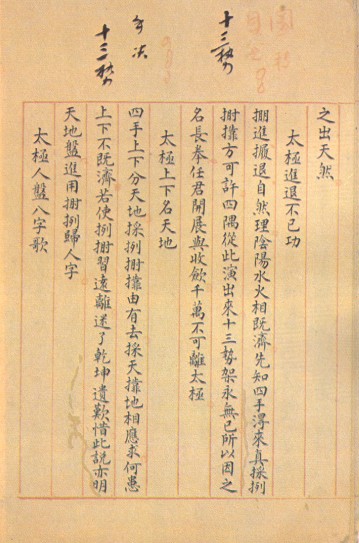 之出天然
太極進退不已功
掤進捋退自然理陰陽水火相既濟先知四手得來真採挒
肘靠方可許四隅從此演出來十三勢架永無已所以因之
名長拳任君開展與收斂千萬不可離太極
太極上下名天地
四手上下分天地採挒肘靠由有去採天靠地相應求何患
上下不既濟若使挒肘習遠離迷了乾坤遺歎惜此説亦明
天地盤進用肘挒歸人字
太極人盤八字歌
十三勢
十三勢